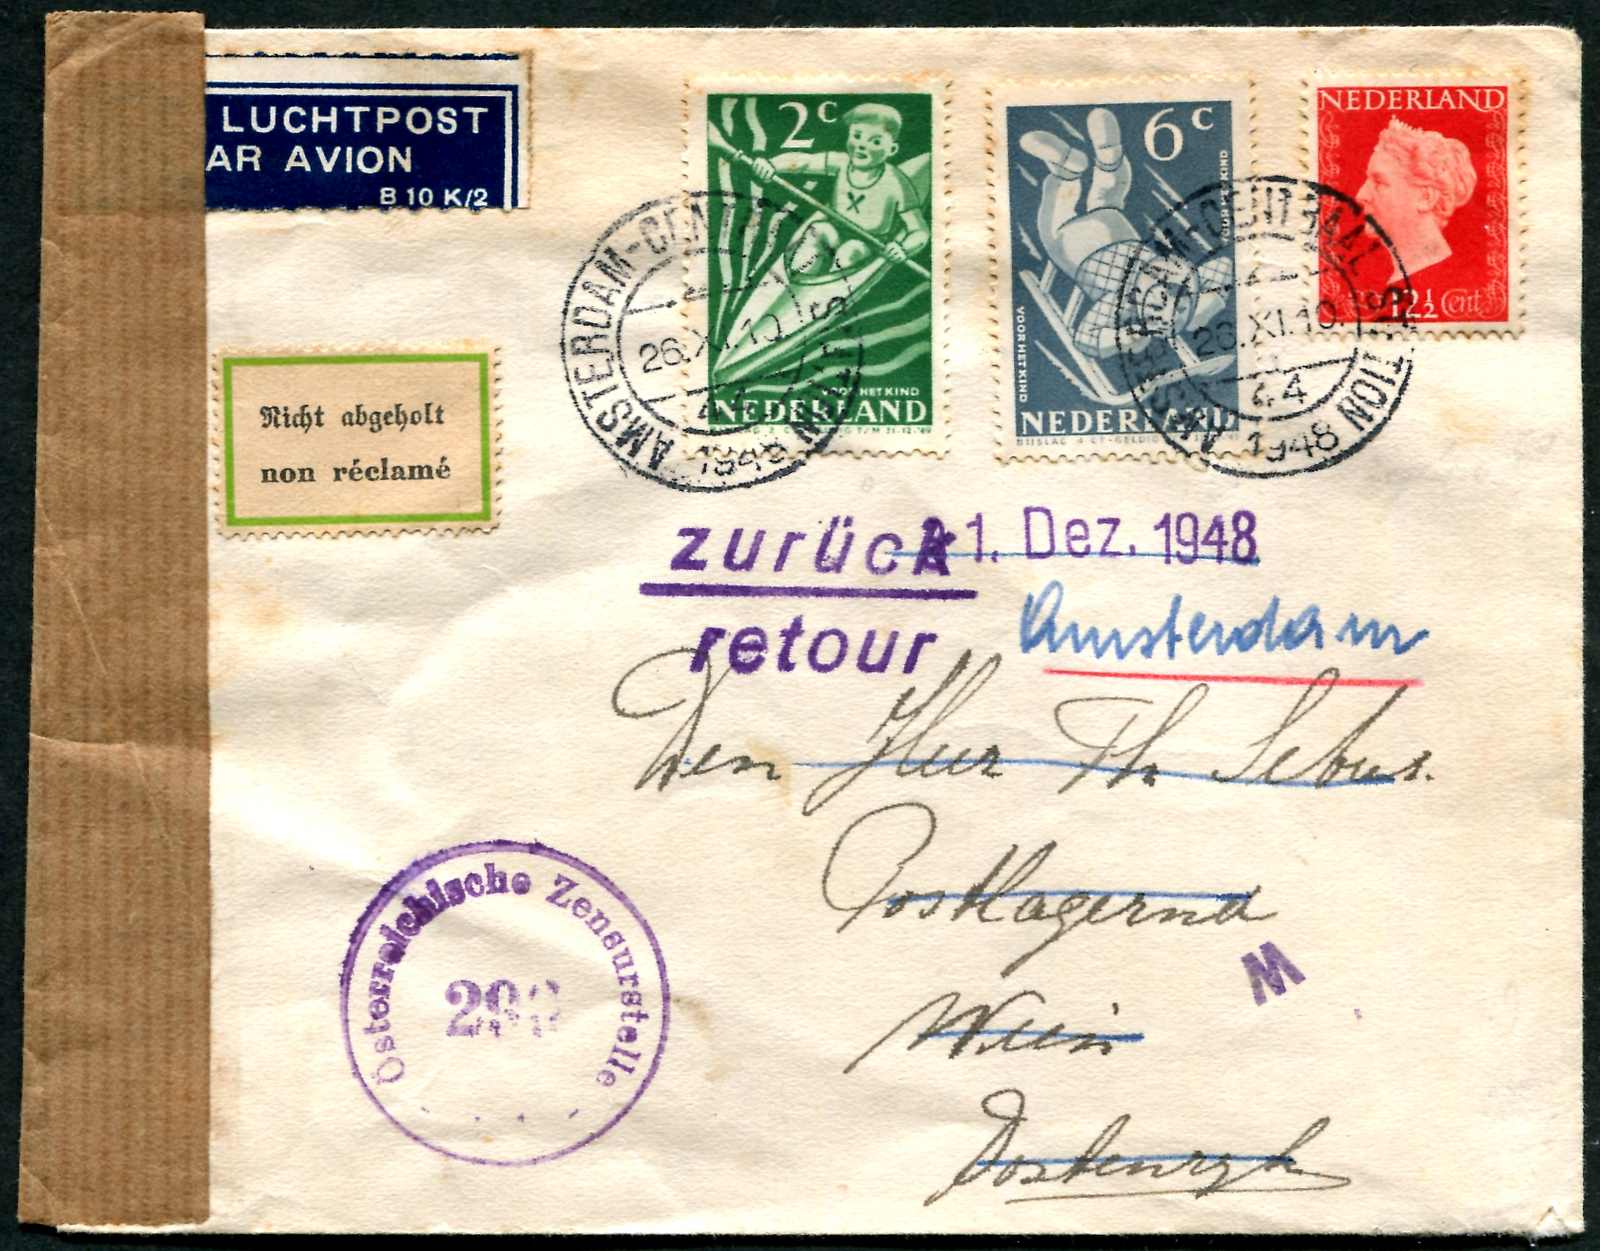 LUCHTPOST
AR AVION
B 10 K/2
2c
VOOR HET KIND
NEDERLAND
6c
VOOR HET KIND
VOOR HET KIND
NEDERLAND
NEDERLAND
12½ Cent
AMSTERDAM-CENTRAAL STATION
26.XI.10
44
1948
AMSTERDAM-CENTRAAL STATION
26.XI.10
44
1948
Nicht abgeholt
non réclamé
zurück
1. Dez. 1948
retour
Amsterdam
Den Heer Th Sebus.
Postlagernd
Wien
Oostenryk
W
Österreichische Zensurstelle